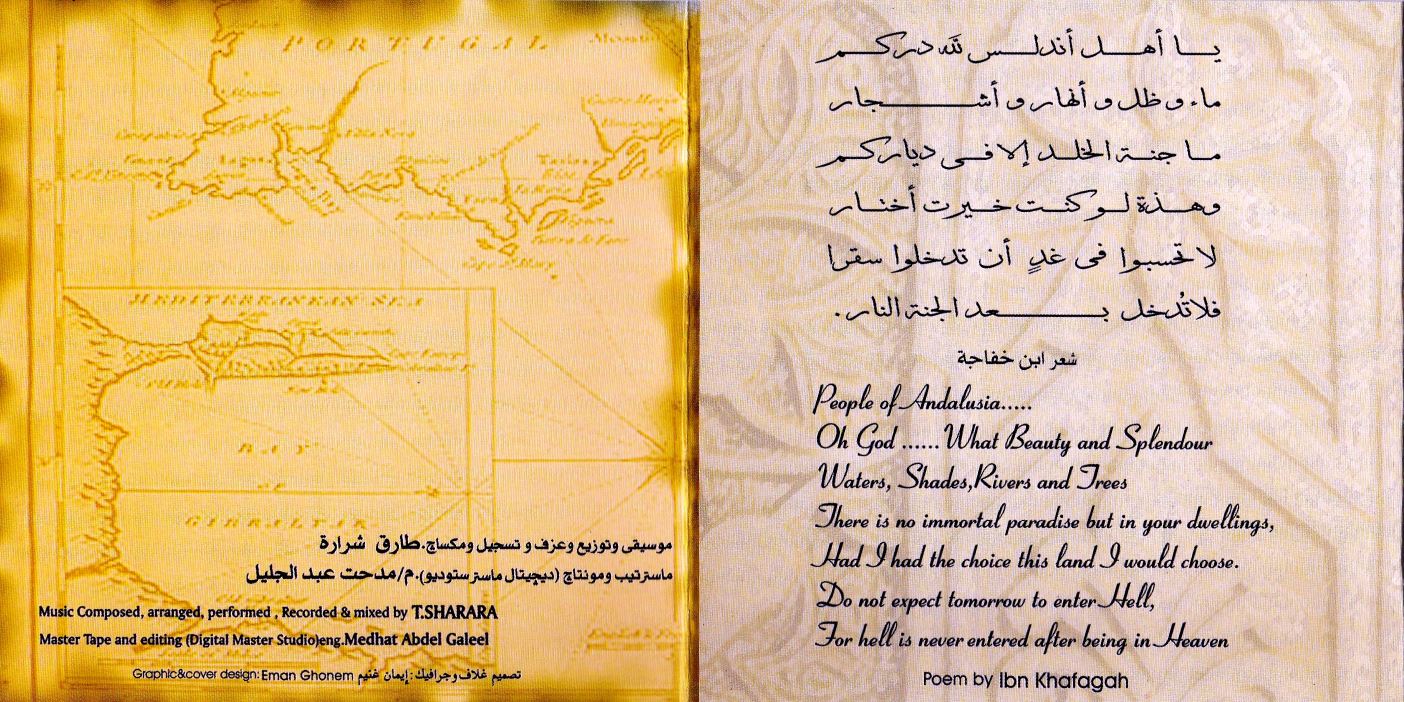 PORTUGAL
Lagos
MEDITERRANEAN SEA
BAY
OF
GIBRALTAR
موسيقى وتوزيع وعزف و تسجيل ومكساج.طارق شرارة
ماستر تيب ومونتاج (ديچيتال ماستر ستوديو).م/مدحت عبد الجليل
Music Composed, arranged, performed , Recorded & mixed by T.SHARARA
Master Tape and editing (Digital Master Studio)eng.Medhat Abdel Galeel
Graphic&cover design: Eman Ghonem تصميم غلاف وجرافيك : إيمان غنيم
يا أهل أندلس لله دركم
ماء و ظل و أنهار و أشجار
ما جنة الخلد إلا فى دياركم
وهذة لو كنت خيرت أختار
لا تحسبوا فى غدٍ أن تدخلوا سقرا
فلا تُدخل بعد الجنة النار .
شعر ابن خفاجة
People of Andalusia.....
Oh God ...... What Beauty and Splendour
Waters, Shades,Rivers and Trees
There is no immortal paradise but in your dwellings,
Had I had the choice this land I would choose.
Do not expect tomorrow to enter Hell,
For hell is never entered after being in Heaven
Poem by Ibn Khafagah